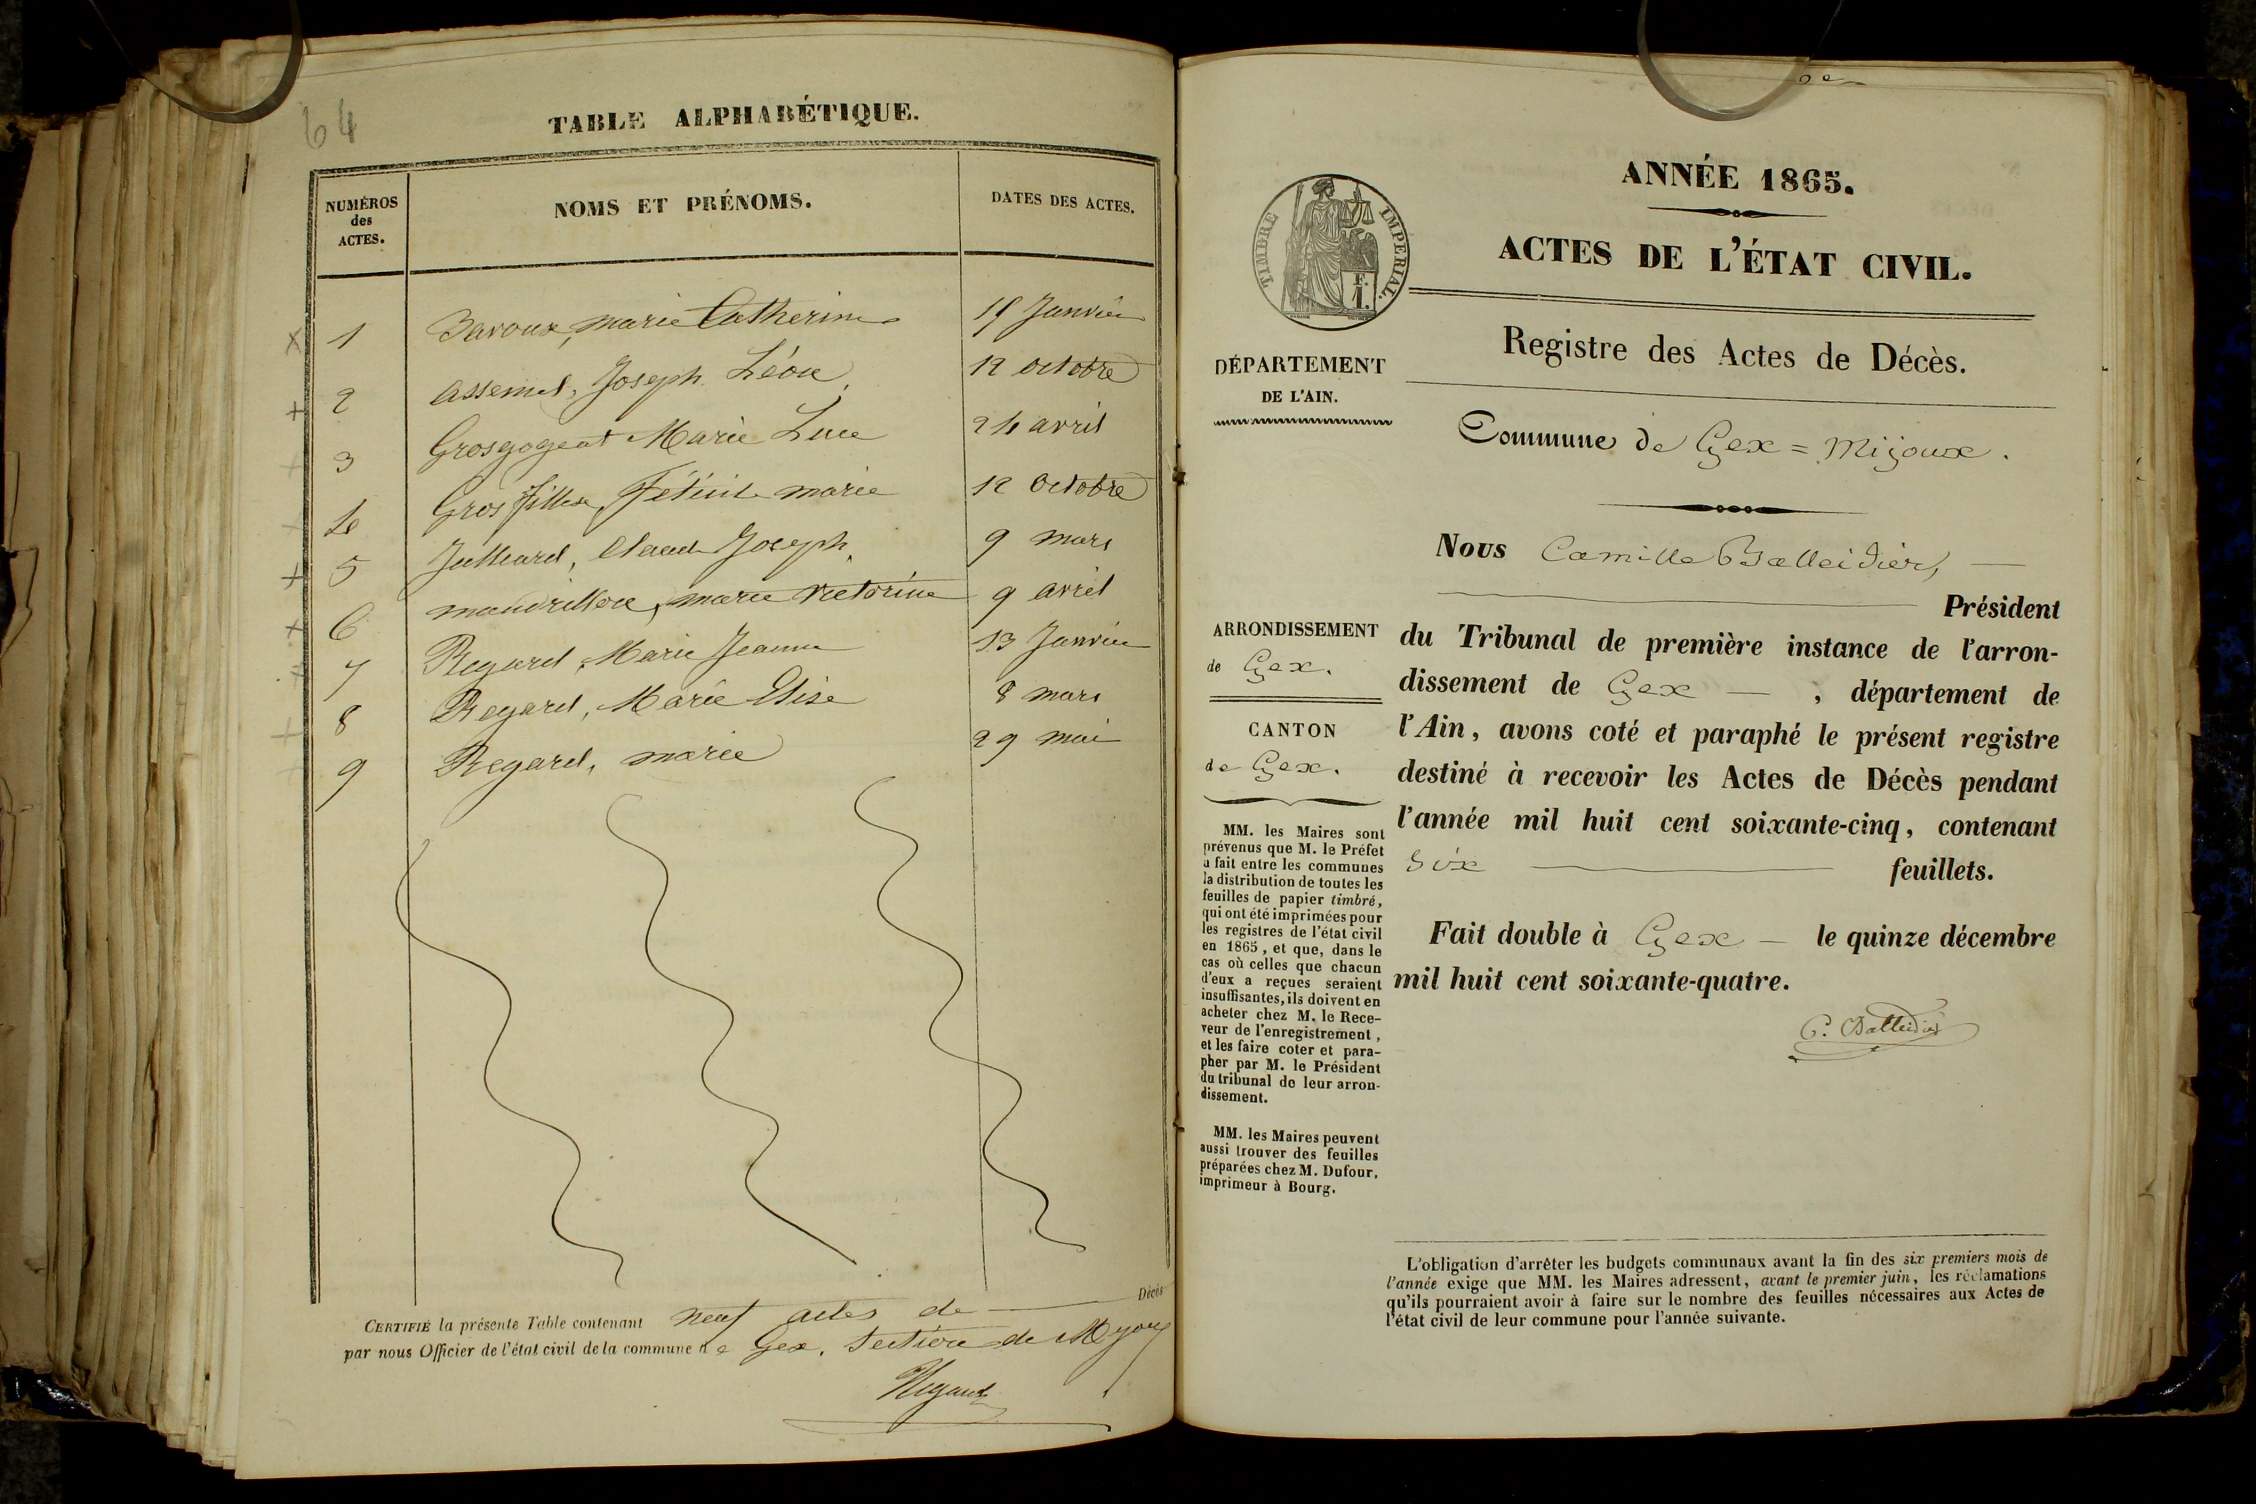 64
TABLE ALPHABÉTIQUE.
NUMÉROS des ACTES.
NOMS ET PRÉNOMS.
DATES DES ACTES.
1 Bavoux, Marie Catherine 15 Janvier
2 Assemel, Joseph Léon 12 octobre
3 Grosgogeat Marie Luce 24 avril
4 Grosfillex, marie 12 Octobre
5 Julliard, Claude Joseph 9 mars
6 mandrillon, marie victorine 9 avril
7 Regard, Marie Jeanne 13 Janvier
8 Regard, Marie Elise 8 mars
9 Regard, marie 29 mai
CERTIFIÉ la présente Table contenant neuf actes de Décès
par nous Officier de l'état civil de la commune de Gex, Section de Myoux
Regard
TIMBRE IMPERIAL.
F. 1.
ANNÉE 1865.
ACTES DE L'ÉTAT CIVIL.
Registre des Actes de Décès.
DÉPARTEMENT
DE L'AIN.
Commune de Gex = Mijoux.
Nous Camille Balleidier,
Président
ARRONDISSEMENT
de Gex.
CANTON
de Gex.
du Tribunal de première instance de l'arron-
dissement de Gex — , département de
l'Ain, avons coté et paraphé le présent registre
destiné à recevoir les Actes de Décès pendant
l'année mil huit cent soixante-cinq, contenant
six feuillets.
Fait double à Gex — le quinze décembre
mil huit cent soixante-quatre.
C. Balleidier
MM. les Maires sont
prévenus que M. le Préfet
a fait entre les communes
la distribution de toutes les
feuilles de papier timbré,
qui ont été imprimées pour
les registres de l'état civil
en 1865, et que, dans le
cas où celles que chacun
d'eux a reçues seraient
insuffisantes, ils doivent en
acheter chez M. le Rece-
veur de l'enregistrement,
et les faire coter et para-
pher par M. le Président
du tribunal de leur arron-
dissement.
MM. les Maires peuvent
aussi trouver des feuilles
préparées chez M. Dufour,
imprimeur à Bourg.
L'obligation d'arrêter les budgets communaux avant la fin des six premiers mois de
l'année exige que MM. les Maires adressent, avant le premier juin, les réclamations
qu'ils pourraient avoir à faire sur le nombre des feuilles nécessaires aux Actes de
l'état civil de leur commune pour l'année suivante.